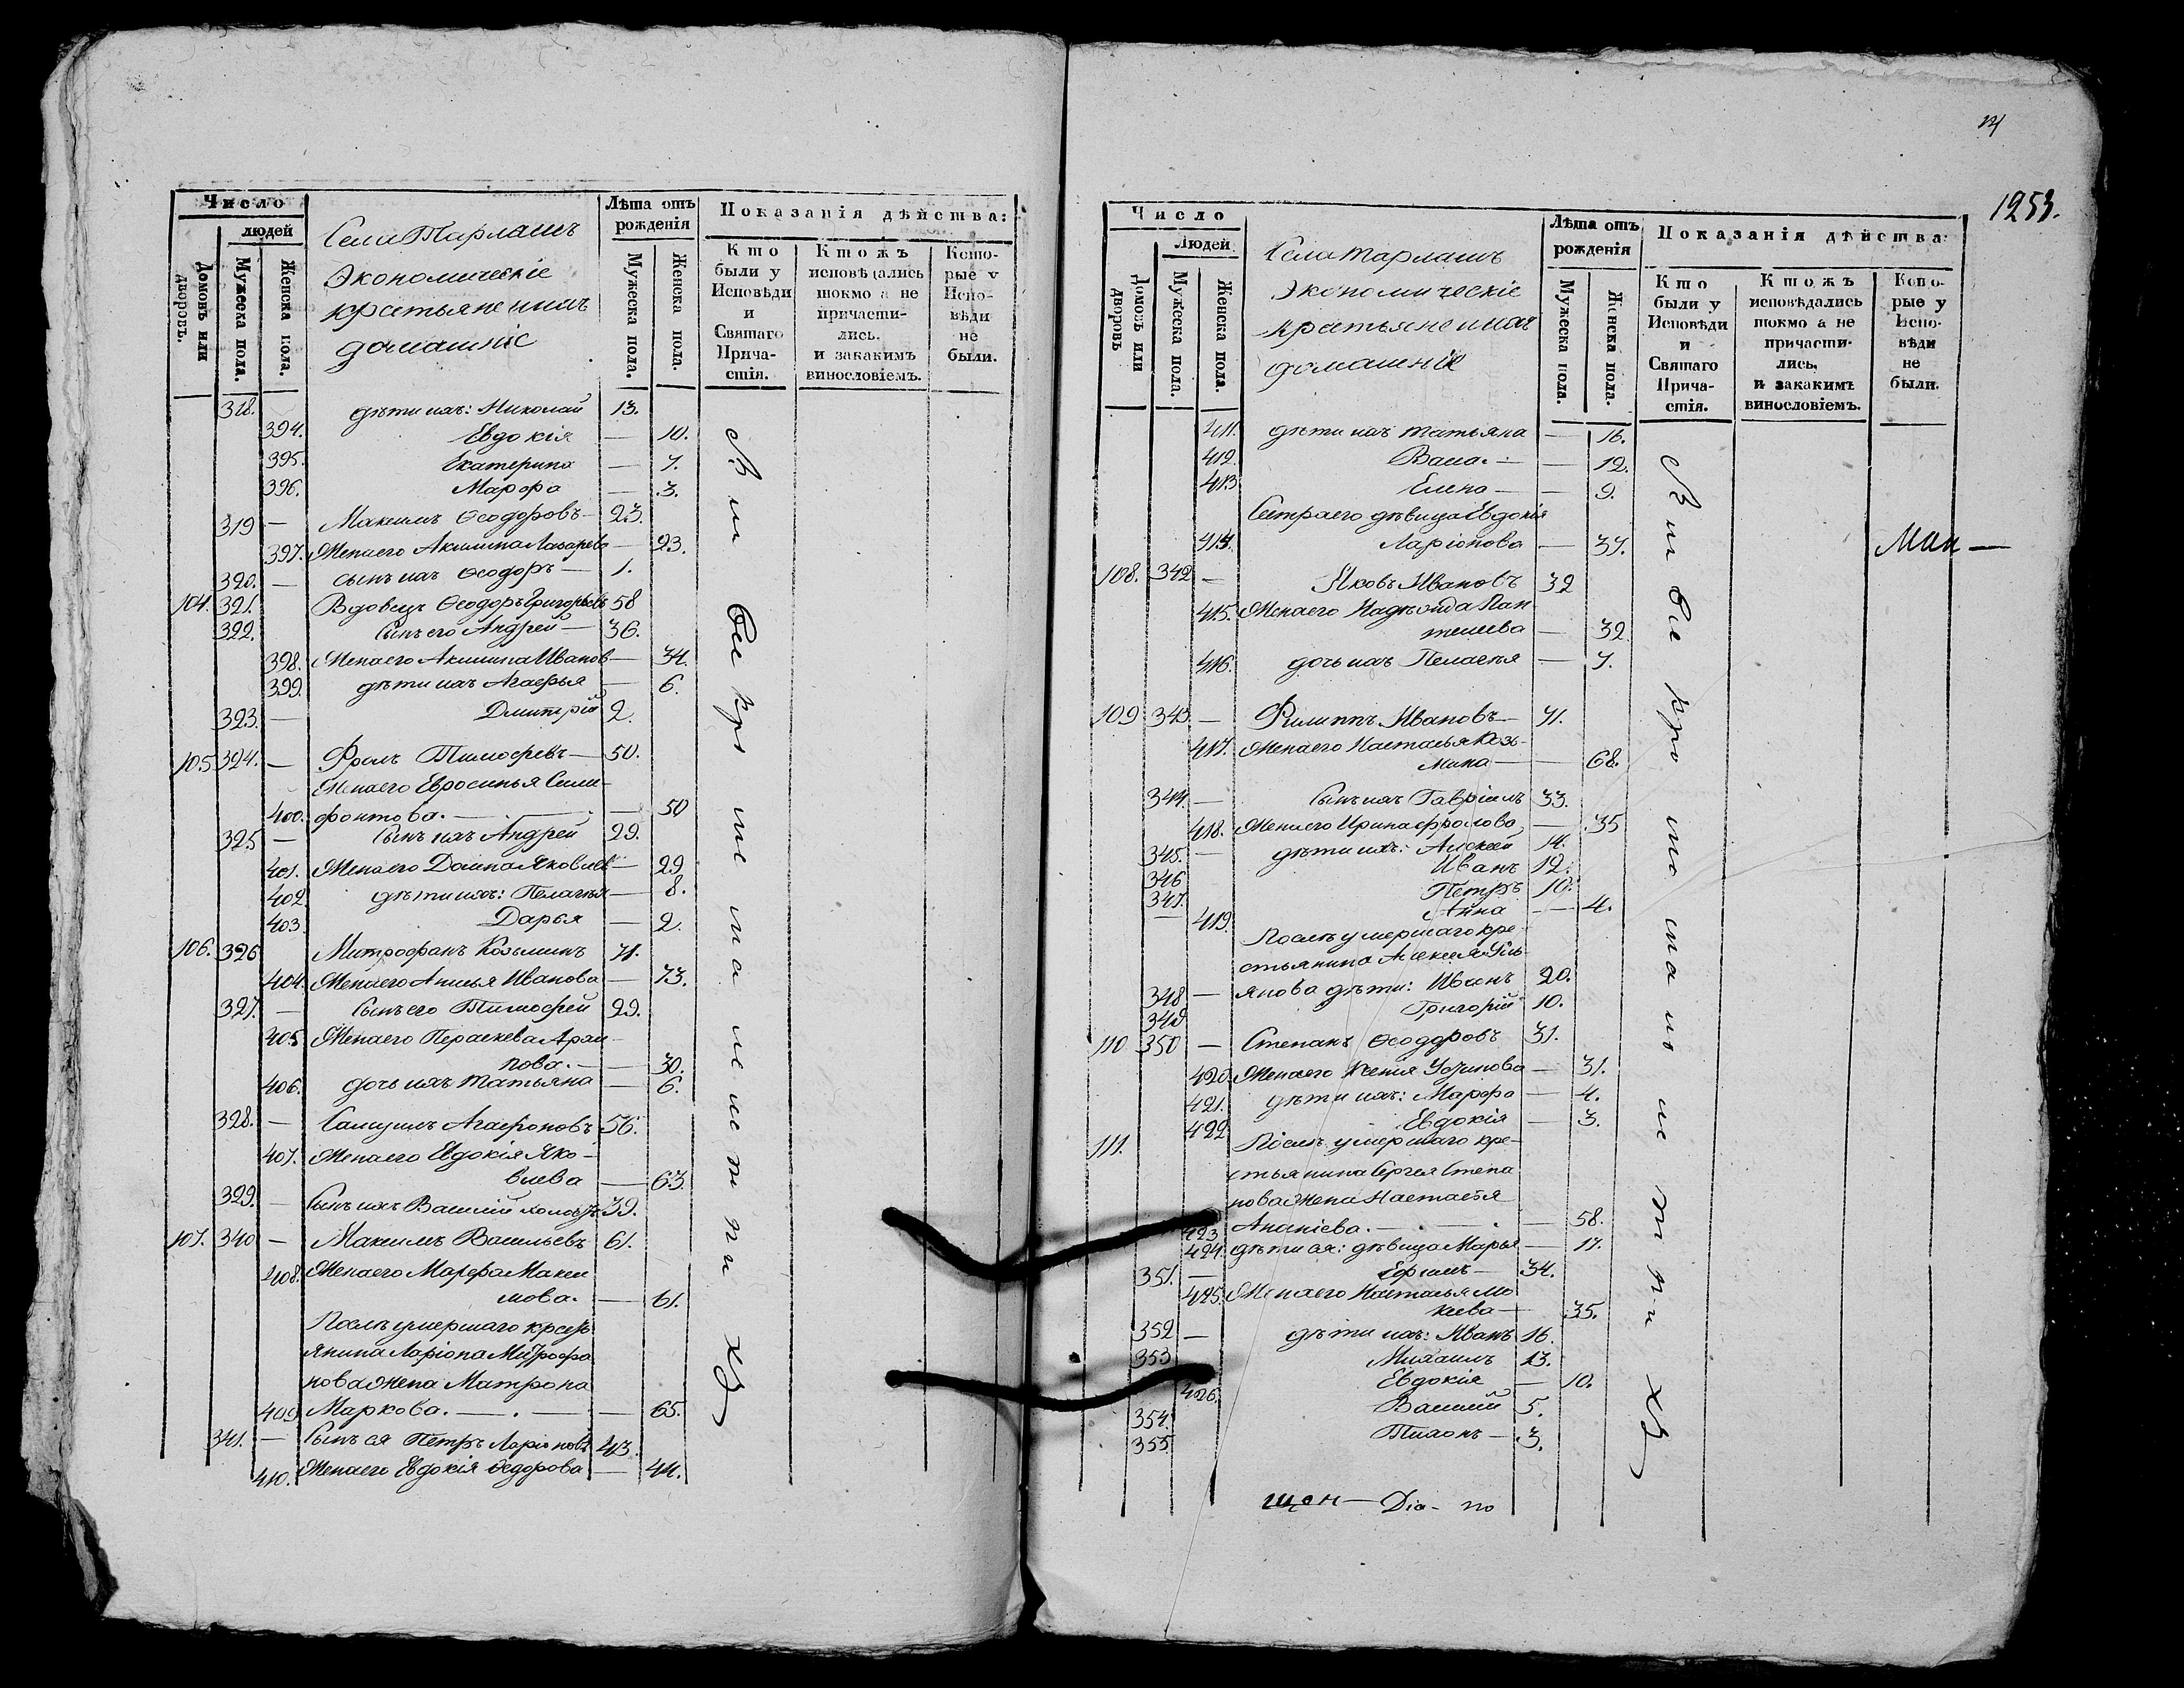 Число
людей
Домовъ или дворовъ.
Мужеска пола.
Женска пола.
Села Тарлашъ
Экономическiе
крестьяне и ихъ
домашнiе
Лѣта отъ рожденiя
Мужеска пола.
Женска пола.
Показанiя дѣйства:
Кто были у Исповѣди и Святаго Причастiя.
Ктожъ исповѣдались токмо а не причастились. и закакимъ винословiемъ.
Которые у Исповѣди не были.
318. дѣти ихъ: Николай 13.
394. Евдокiя — 10.
395. Екатерина — 7.
396. Марфа — 3.
319 — Максимъ Ѳеодоровъ — 23.
397. Жена его Акилина Лазарева — 23.
320. — сынъ ихъ Ѳеодоръ — 1.
104. 321. Вдовецъ Ѳеодоръ Григорьевъ 58
322. Сынъ его Андрей — 36.
398. Жена его Акилина Иванов — 34.
399. дѣти ихъ Агафья — 6.
323. — Дмитрiй 2.
105 324. — Фролъ Тимофевъ — 50.
Жена его Евросинья Сели-
400. фонтова. — 50
325 — Сынъ ихъ Андрей 29.
401. Жена его Домна Яковлев — 29
402 дѣти ихъ: Пелагѣя — 8.
403 Дарья — 2.
106. 326 Митрофанъ Козьминъ 71.
404. Жена его Анисья Иванова — 73.
327. — Сынъ его Тимофей 29.
405 Жена его Параскева Архи-
пова. — 30.
406. дочь ихъ Татьяна — 6.
328. — Самуилъ Агафоновъ 56.
407. Жена его Евдокiя Яко-
влева — 63
329. — Сынъ ихъ Василiй холостъ 39.
107. 340 — Максимъ Васильевъ 61.
408. Жена его Марфа Макси
мова. — 61.
Послѣ умершаго кресть
янина Ларiона Митрофа
нова жена Матрона
409 Маркова. — . — — 65.
341. — Сынъ ея Петръ Ларiоновъ 43.
410. Жена его Евдокiя Ѳедорова — 44.
1253.
Число
Людей
Домовъ или дворовъ
Мужеска пола.
Женска пола.
Села Тарлашъ
Экономическiе
крестьяне и ихъ
домашнiе
Лѣта отъ рожденiя
Мужеска пола.
Женска пола.
Показанiя дѣйства
Кто были у Исповѣди и Святаго Причастiя.
Ктожъ исповѣдались токмо а не причастились, и закакимъ винословiемъ.
Которые у Исповѣди не были.
411. дѣти ихъ Татьяна — 16.
412. Васа. — — 12.
413 Елена — — 9.
Сестра его дѣвица Евдокiя
414. Ларiонова — 37.
108. 342 — Яковъ Ивановъ 32
415. Жена его Надѣжда Пан
телеева — 32
416. дочь ихъ Пелагѣя — 7.
109 343 — Филиппъ Ивановъ — 71.
417. Жена его Настасья Козь-
мина — — 68.
344. — Сынъ ихъ Гаврiилъ 33.
418. Жена его Ирина Фролова — 35
345. — дѣти ихъ: Алексей 14.
346 Иванъ 12.
347. Петръ 10.
— 419. Анна — 4.
Послѣ умершаго кре-
стьянина Алексея Уль-
348 — янова дѣти: Иванъ 20.
349 Григорiй 10.
110 350 — Степанъ Ѳеодоровъ 31.
420. Жена его Ксенiя Устинова — 31.
421. дѣти ихъ: Марфа — 4.
422 Евдокiя — 3.
111. Послѣ умершаго кре-
стьянина Сергея Степа
нова жена Настасья
423 Ананiева. — 58.
424. дѣти ея: дѣвица Марья — 17.
351. — Ефимъ — 34.
425. Жена его Настасья Мо
кеева — 35.
352 — дѣти ихъ: Иванъ 16.
353 Михаилъ 13.
426. Евдокiя — 10.
354. Василiй 5.
355 Тихонъ — 3.
щен — Дiа- ко